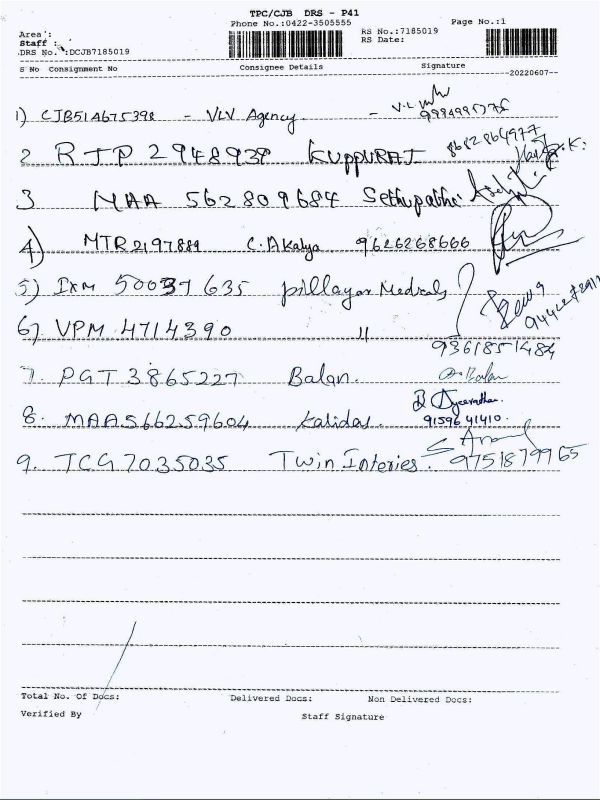 TPC/CJB DRS - P41
Phone No.:0422-3505555
Page No.:1
Area :
RS No.:7185019
Staff :
RS Date:
DRS No. :DCJB7185019
S No Consignment No Consignee Details Signature
--20220607--
1) CJB51A675398 - VLV Agency - V.L
2 RJP 2948939 KUPPURAJ 8682864977
3 MAA 562809684 Sethupathi
4) MTR2197889 C. Akalya 9626268666
5) IXM 50037635 pillayar Medicals
6) VPM 4714390 "
9361851484
7. PGT 3865227 Balan. Balan
8. MAA566259604 Kalidas.
91596 41410.
9. TCG7035035 Twin Interies. 9751879965
Total No. Of Docs: Delivered Docs: Non Delivered Docs:
Verified By Staff Signature